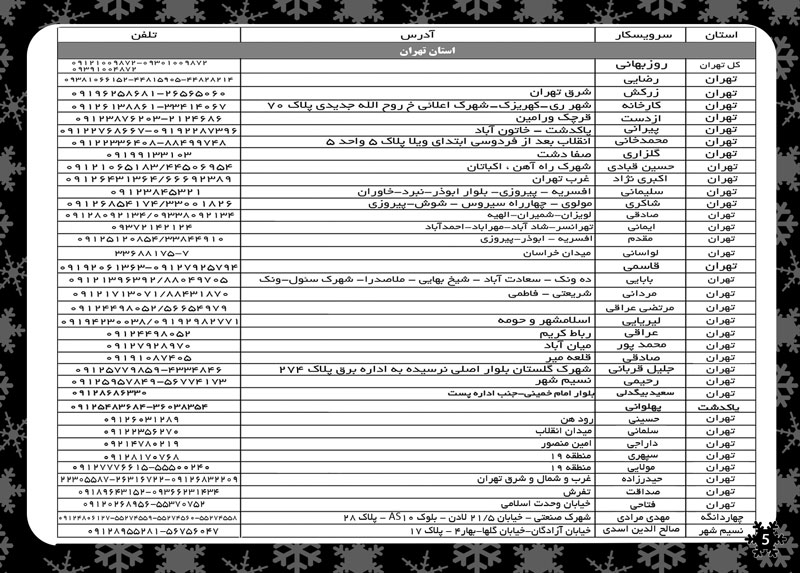 استان سرویسکار آدرس تلفن
استان تهران
کل تهران روزبهانی ۰۹۱۲۱۰۰۹۸۷۲-۰۹۳۰۱۰۰۹۸۷۲
۰۹۳۹۱۰۰۴۸۷۲
تهران رضایی ۰۹۳۸۱۰۶۶۱۵۲-۴۴۸۱۵۹۰۵-۴۴۸۲۸۲۱۴
تهران زرکش شرق تهران ۰۹۱۹۶۲۵۸۶۸۱-۲۶۵۶۵۰۶۰
تهران کارخانه شهر ری-کهریزک-شهرک اعلائی خ روح الله جدیدی پلاک ۷۰ ۰۹۱۲۶۱۳۸۸۶۱-۳۳۴۱۴۰۶۷
تهران ازدست قرچک ورامین ۰۹۱۲۳۸۷۶۲۰۳-۲۱۲۴۶۸۶
تهران پیرانی پاکدشت - خاتون آباد ۰۹۱۲۲۷۶۸۶۶۷-۰۹۱۹۲۲۸۷۳۹۶
تهران محمدخانی انقلاب بعد از فردوسی ابتدای ویلا پلاک ۵ واحد ۵ ۰۹۱۲۲۳۳۶۴۰۸-۸۸۴۹۹۷۴۸
تهران گلزاری صفا دشت ۰۹۱۹۹۱۳۳۱۰۳
تهران حسین قبادی شهرک راه آهن ، اکباتان ۰۹۱۲۱۰۶۵۱۸۳/۴۴۵۰۶۹۵۴
تهران اکبری نژاد غرب تهران ۰۹۱۲۶۴۳۱۳۶۴/۶۶۶۹۲۳۸۹
تهران سلیمانی افسریه - پیروزی- بلوار ابوذر-نبرد-خاوران ۰۹۱۲۳۸۴۵۳۲۱
تهران شاکری مولوی - چهارراه سیروس - شوش-پیروزی ۰۹۱۲۶۸۵۴۱۷۴/۳۳۰۰۱۸۲۶
تهران صادقی لویزان-شمیران-الهیه ۰۹۱۲۸۰۹۲۱۳۴/۰۹۳۳۸۰۹۲۱۳۴
تهران ایمانی تهرانسر-شاد آباد-مهراباد-احمدآباد ۰۹۳۷۲۱۴۲۱۲۴
تهران مقدم افسریه - ابوذر-پیروزی ۰۹۱۲۵۱۲۰۸۵۴/۳۳۸۴۴۹۱۰
تهران لواسانی میدان خراسان ۳۳۶۸۸۱۷۵-۷
تهران قاسمی ۰۹۱۹۲۰۶۱۳۶۳-۰۹۱۲۷۹۲۵۷۹۴
تهران بابایی ده ونک - سعادت آباد - شیخ بهایی - ملاصدرا- شهرک سئول-ونک ۰۹۱۲۱۳۹۶۳۹۲/۸۸۰۴۹۷۰۵
تهران مردانی شریعتی - فاطمی ۰۹۱۲۱۷۱۳۰۷۱/۸۸۴۳۱۸۷۰
تهران مرتضی عراقی ۰۹۱۲۴۴۹۸۰۵۲/۵۶۶۵۴۹۷۹
تهران لیریایی اسلامشهر و حومه ۰۹۱۹۴۲۳۰۰۳۸/۰۹۱۹۲۹۸۲۷۷۱
تهران عراقی رباط کریم ۰۹۱۲۴۴۹۸۰۵۲
تهران محمد پور میان آباد ۰۹۱۲۷۹۲۸۹۷۰
تهران صادقی قلعه میر ۰۹۱۹۱۰۸۷۴۰۵
تهران جلیل قربانی شهرک گلستان بلوار اصلی نرسیده به اداره برق پلاک ۲۷۴ ۰۹۱۲۵۷۷۹۸۵۹-۴۳۳۴۸۴۶
تهران رحیمی نسیم شهر ۰۹۱۲۵۹۵۷۸۴۹-۵۶۷۷۴۱۷۳
تهران سعید بیگدلی بلوار امام خمینی-جنب اداره پست ۰۹۱۲۸۶۸۶۳۳۰
پاکدشت پهلوانی ۰۹۱۲۵۴۸۳۶۸۴-۳۶۰۳۸۳۵۴
تهران حسینی رود هن ۰۹۱۲۶۰۳۱۲۸۹
تهران سلمانی میدان انقلاب ۰۹۱۲۲۳۵۶۲۷۰
تهران داراجی امین منصور ۰۹۲۱۴۷۸۰۲۱۹
تهران سپهری منطقه ۱۹ ۰۹۱۲۸۱۷۰۷۶۸
تهران مولایی منطقه ۱۹ ۰۹۱۲۷۷۷۶۶۱۵-۵۵۵۰۰۲۴۰
تهران حیدرزاده غرب و شمال و شرق تهران ۲۲۳۰۵۵۸۷-۲۶۳۱۶۷۲۲-۰۹۱۲۶۸۳۲۲۰۹
تهران صداقت تفرش ۰۹۱۸۹۶۴۳۱۵۲-۰۹۳۶۶۲۳۱۴۳۴
تهران فتاحی خیابان وحدت اسلامی ۰۹۱۲۰۲۶۸۹۵۶-۵۵۳۷۰۷۵۲
چهاردانگه مهدی مرادی شهرک صنعتی - خیابان ۲۱/۵ لادن - بلوک AS۱۰ - پلاک ۲۸ ۰۹۱۲۴۸۰۶۱۲۷-۵۵۲۷۴۵۵۹-۵۵۲۷۴۵۶۰-۵۵۲۷۴۵۵۸
نسیم شهر صالح الدین اسدی خیابان آزادگان-خیابان گلها-بهار۴ - پلاک ۱۷ ۰۹۱۲۸۹۵۵۲۸۱-۵۶۷۵۶۰۴۷
5